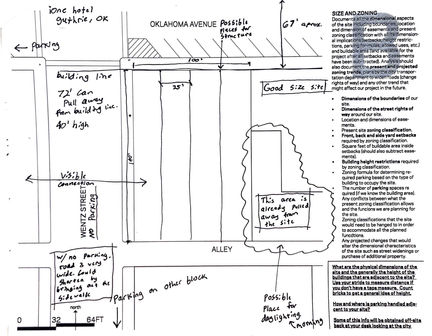 iOne hotel
guthrie, OK
OKLAHOMA AVENUE
Possible
places for
structure
67' aprox.
parking
100'
building line
72' can
Pull away
from building line.
40' high
25'
Good size site
140'
Visible
connection
WENTZ STREET
NO Parking
This area is
already pulled
away from
the site
ALLEY
w/ no parking,
road is very
wide. Could
shorten by
bringing out the
sidewalk
Parking on other block
Possible
Place for
daylighting
morning
0 16 32 64FT
SIZE AND ZONING
Document all the dimensional aspects
of the site including boundaries, location
and dimensions of easements and present
zoning classification with all its dimension-
al implications (setbacks, height restric-
tions, parking formulas, allowed uses, etc.)
and buildable area (land available for the
project after all setbacks and easements
have been subtracted). Analysis should
also document the present and projected
zoning trends, plans by the city transpor-
tation department to widen roads (change
rights of way) and any other trend that
might affect our project in the future.
Dimensions of the boundaries of our
site.
Dimensions of the street rights of
way around our site.
Location and dimensions of ease-
ments.
Present site zoning classification.
Front, back and side yard setbacks
required by zoning classification.
Square feet of buildable area inside
setbacks (should also subtract ease-
ments).
Building height restrictions required
by zoning classification.
Zoning formula for determining re-
quired parking based on the type of
building to occupy the site.
The number of parking spaces re-
quired (if we know the building area).
Any conflicts between what the
present zoning classification allows
and the functions we are planning for
the site.
Zoning classifications that the site
would need to be changed to in order
to accommodate all the planned
functions.
Any projected changes that would
alter the dimensional characteristics
of the site such as street widenings or
purchase of additional property.
What are the physical dimensions of the
site and the generally the height of the
buildings that are adjacent to the site?
Use your strides to measure distances
if you don't have a tape measure. Count
bricks to get a general idea of height.
How and where is parking handled adja-
cent to your site?
Some of this info will be obtained off-site
back at your desk looking at the city